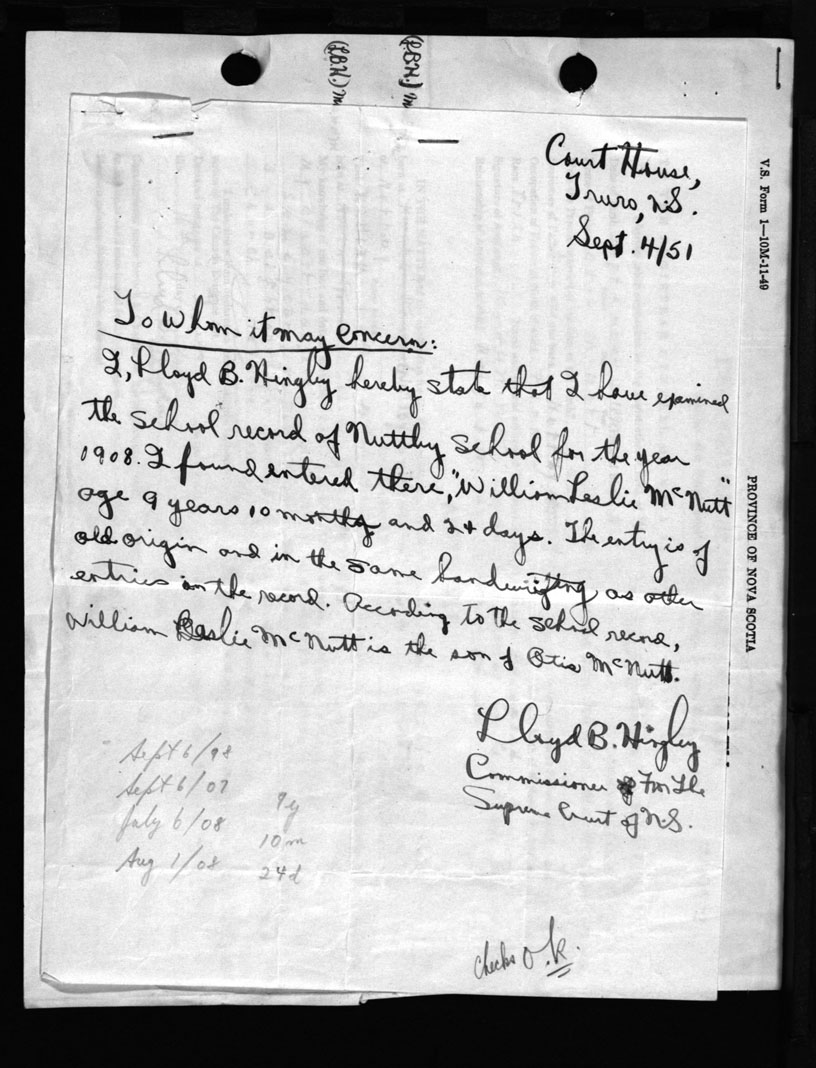 (L.B.H.)
(L.B.H.)
Court House,
Truro, N.S.
Sept. 4/51
V.S. Form 1—10M-11-49
PROVINCE OF NOVA SCOTIA
To Whom it may Concern:
I, Lloyd B. Hingley hereby state that I have examined
the school record of Nuttby School for the year
1908. I found entered there, "William Leslie McNutt"
age 9 years 10 months and 24 days. The entry is of
old origin and in the same handwriting as other
entries in the record. According to the school record,
William Leslie McNutt is the son of Otis McNutt.
Lloyd B. Hingley
Commissioner For the
Supreme Court of N.S.
Sept 6/98
Sept 6/07
9y
July 6/08
10m
Aug 1/08
24d
checks O.K.